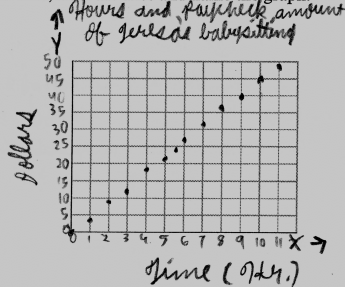 Hours and paycheck amount
of Teresa's babysitting
Y
50
45
40
35
30
25
20
15
10
5
0
Dollars
1 2 3 4 5 6 7 8 9 10 11 X
Time (Hr.)